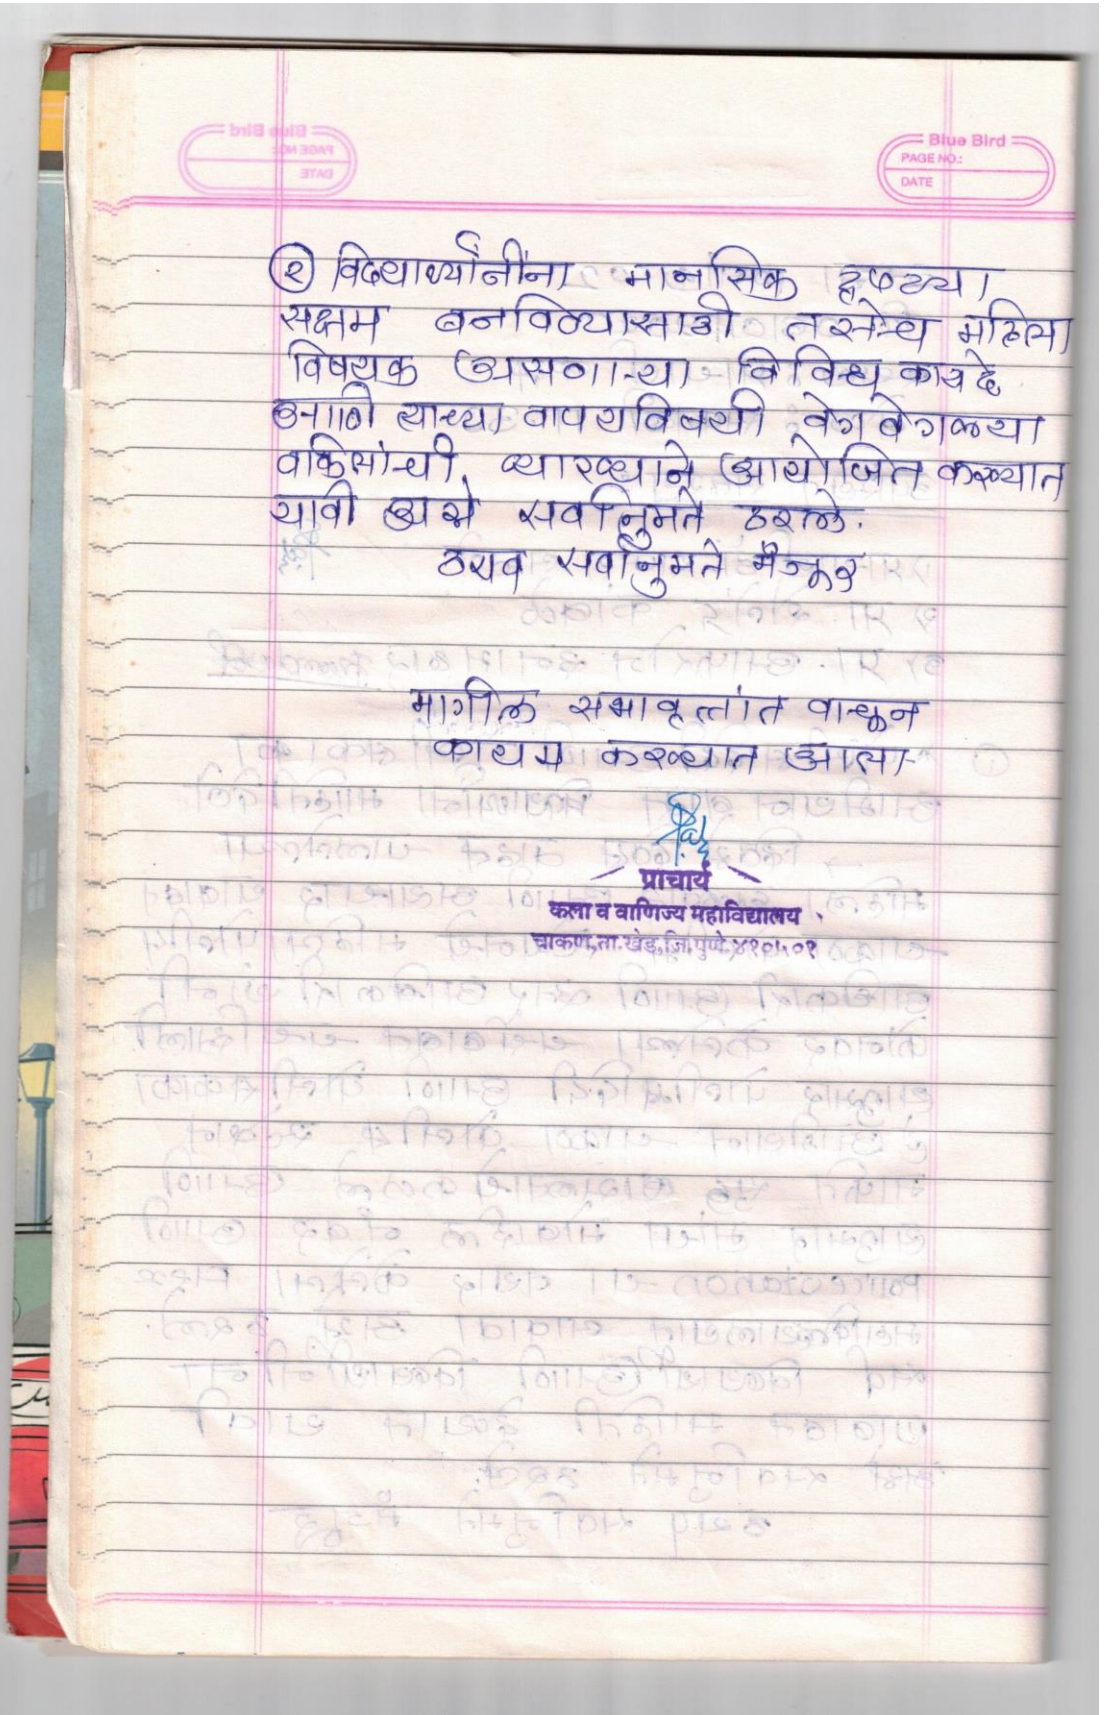 Blue Bird
PAGE NO.:
DATE
② विद्यार्थ्यांनींना मानसिक दृष्ट्या
सक्षम बनविण्यासाठी तसेच महिला
विषयक असणाऱ्या विविध कायदे
आणि त्याच्या वापराविषयी वेगवेगळ्या
वकिलांची व्याख्याने आयोजित करण्यात
यावी असे सर्वानुमते ठरले.
ठराव सर्वानुमते मंजूर
मागील सभावृत्तांत वाचून
कायम करण्यात आला
प्राचार्य
कला व वाणिज्य महाविद्यालय
चाकण,ता.खेड,जि.पुणे.४१०५०१